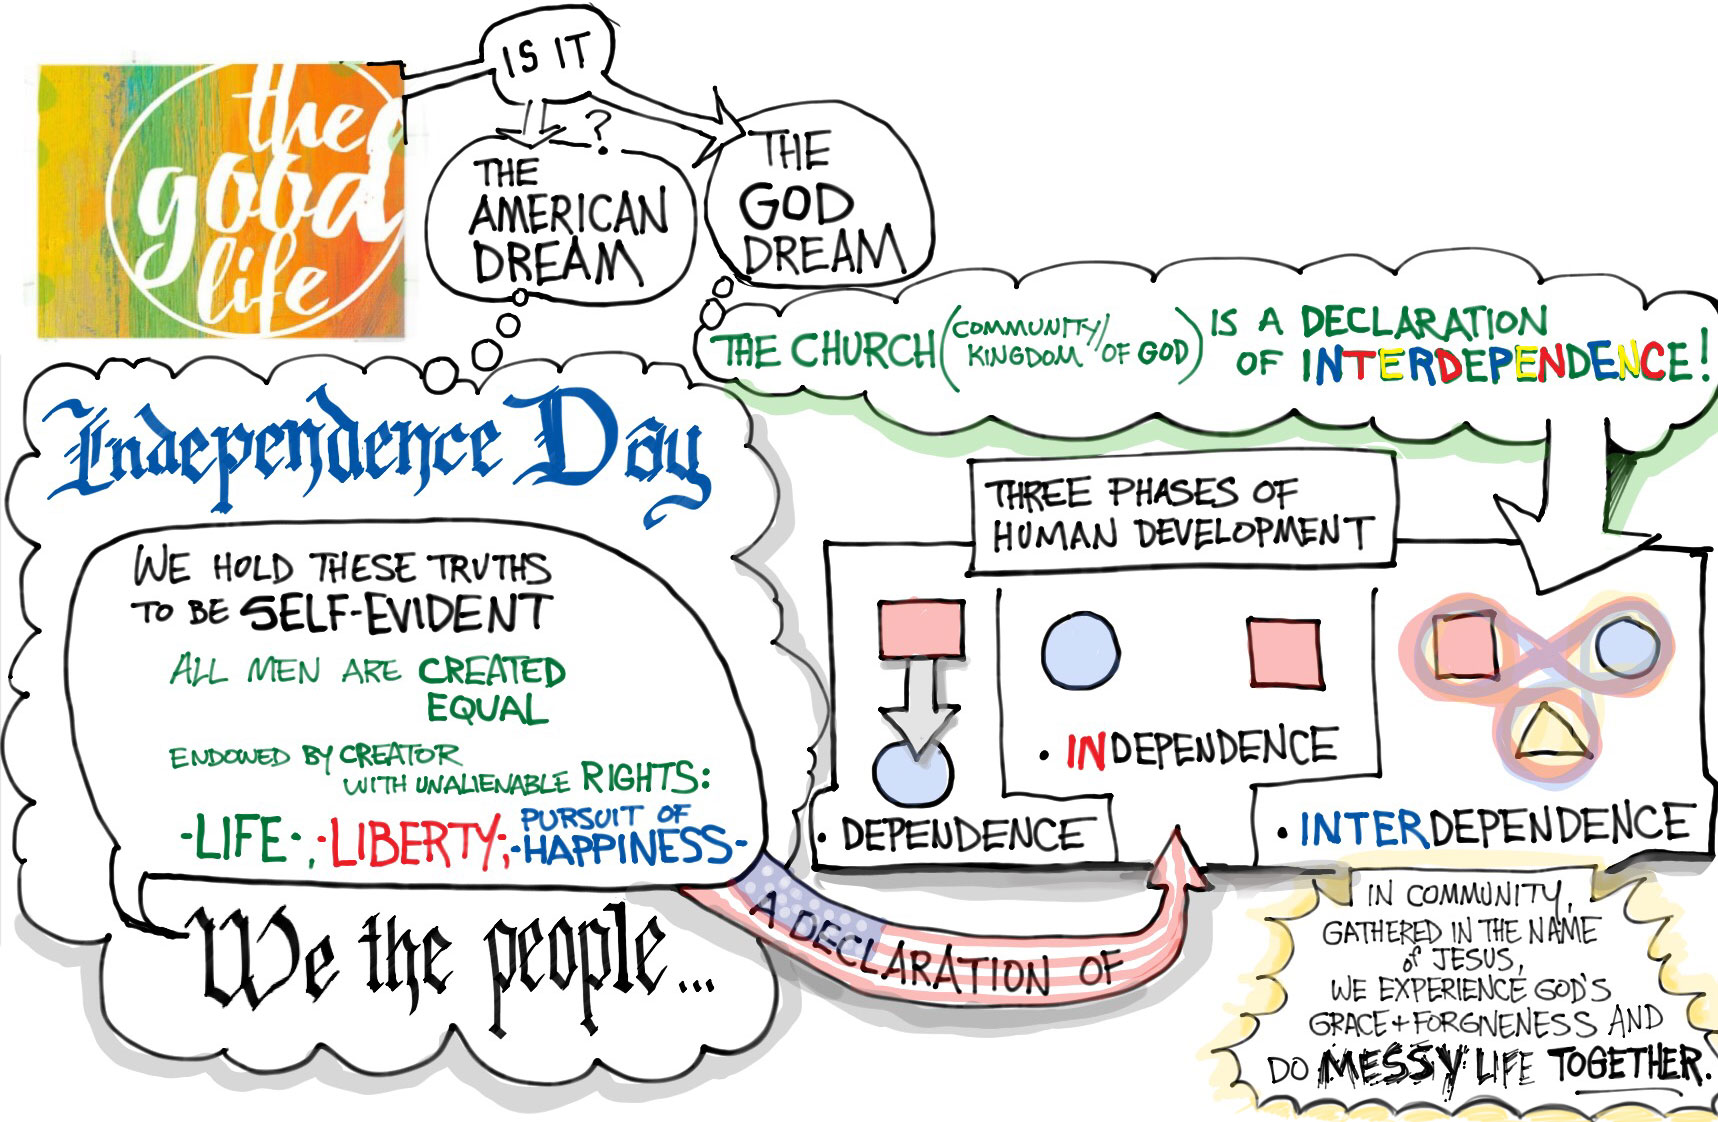 the
good
life
IS IT
?
THE
AMERICAN
DREAM
THE
GOD
DREAM
THE CHURCH (COMMUNITY/KINGDOM/OF GOD) IS A DECLARATION
OF INTERDEPENDENCE!
Independence Day
WE HOLD THESE TRUTHS
TO BE SELF-EVIDENT
ALL MEN ARE CREATED
EQUAL
ENDOWED BY CREATOR
WITH UNALIENABLE RIGHTS:
-LIFE-, -LIBERTY, -PURSUIT OF
HAPPINESS-
We the people...
A DECLARATION OF
THREE PHASES OF
HUMAN DEVELOPMENT
• DEPENDENCE
• INDEPENDENCE
• INTERDEPENDENCE
IN COMMUNITY,
GATHERED IN THE NAME
of JESUS,
WE EXPERIENCE GOD'S
GRACE + FORGIVENESS AND
DO MESSY LIFE TOGETHER.